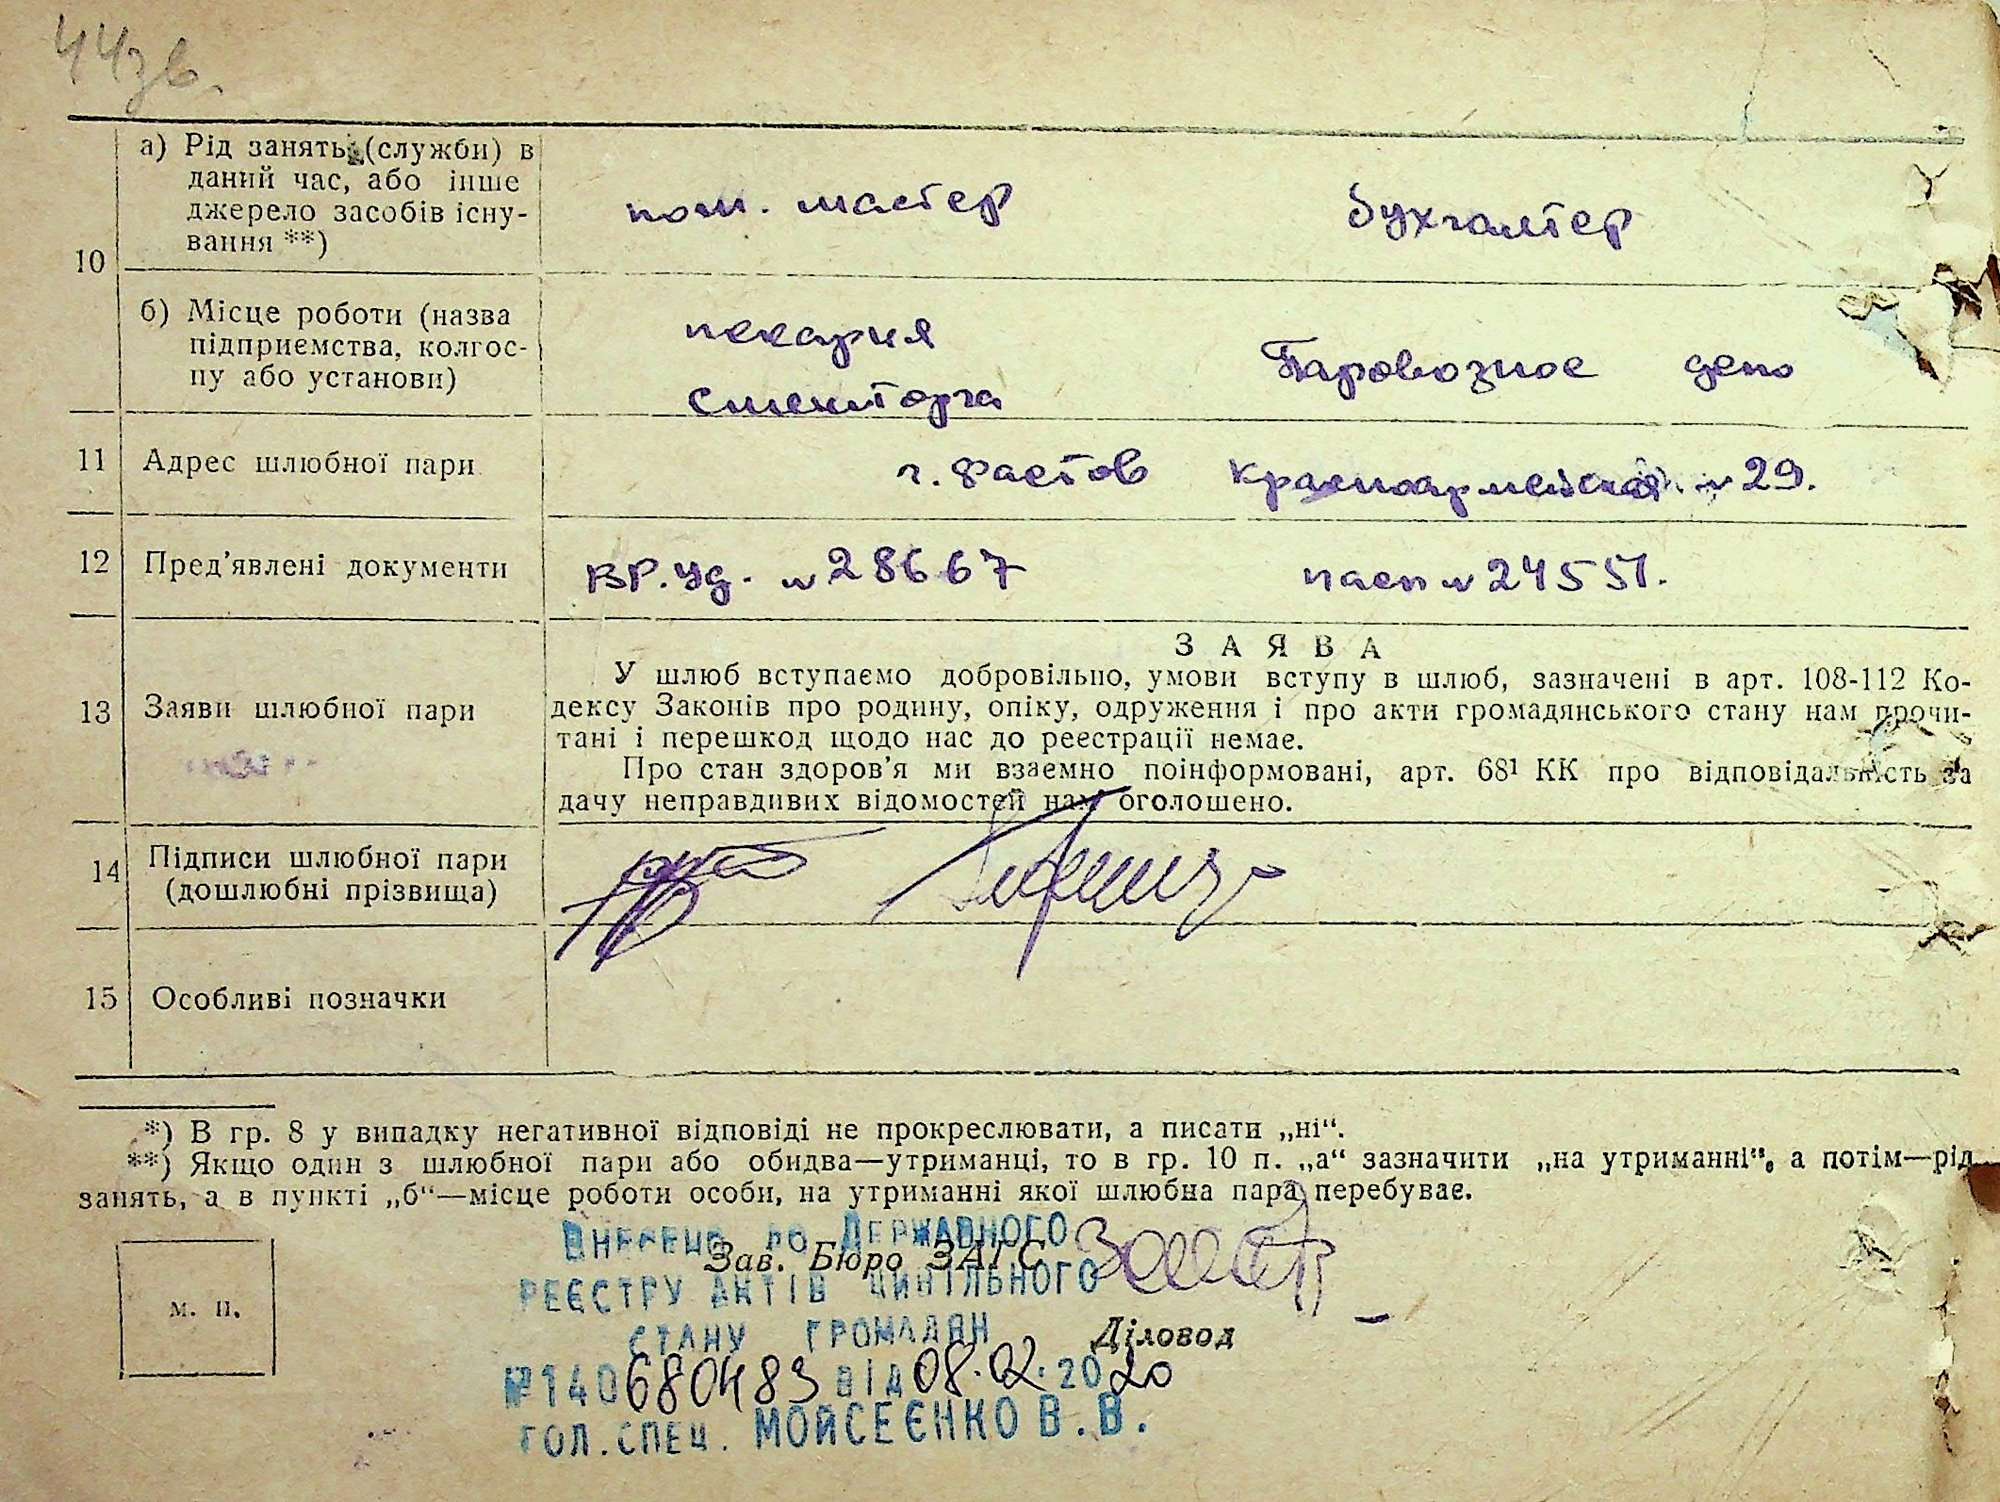 44зв.
10
а) Рід занять (служби) в
даний час, або інше
джерело засобів існу-
вання **)
пом. мастер
бухгалтер
б) Місце роботи (назва
підприємства, колгос-
пу або установи)
пекария
Паровозное депо
11
Адрес шлюбної пари
г. Фастов Красноармейская № 29.
12
Пред'явлені документи
вр. уд. № 28667
пасп № 24551.
13
Заяви шлюбної пари
ЗАЯВА
У шлюб вступаємо добровільно, умови вступу в шлюб, зазначені в арт. 108-112 Ко-
дексу Законів про родину, опіку, одруження і про акти громадянського стану нам прочи-
тані і перешкод щодо нас до реєстрації немає.
Про стан здоров'я ми взаємно поінформовані, арт. 68¹ КК про відповідальність за
дачу неправдивих відомостей нам оголошено.
14
Підписи шлюбної пари
(дошлюбні прізвища)
15
Особливі позначки
*) В гр. 8 у випадку негативної відповіді не прокреслювати, а писати „ні“.
**) Якщо один з шлюбної пари або обидва—утриманці, то в гр. 10 п. „а“ зазначити „на утриманні”, а потім—рід
занять, а в пункті „б“—місце роботи особи, на утриманні якої шлюбна пара перебуває.
ВНЕСЕНО ДО ДЕРЖАВНОГО
Зав. Бюро ЗАГС
РЕЄСТРУ АКТІВ ЦИВІЛЬНОГО
м. п.
СТАНУ ГРОМАДЯН
Діловод
№ 140680483 від 08.02.2020
ГОЛ.СПЕЦ. МОЙСЕЄНКО В.В.